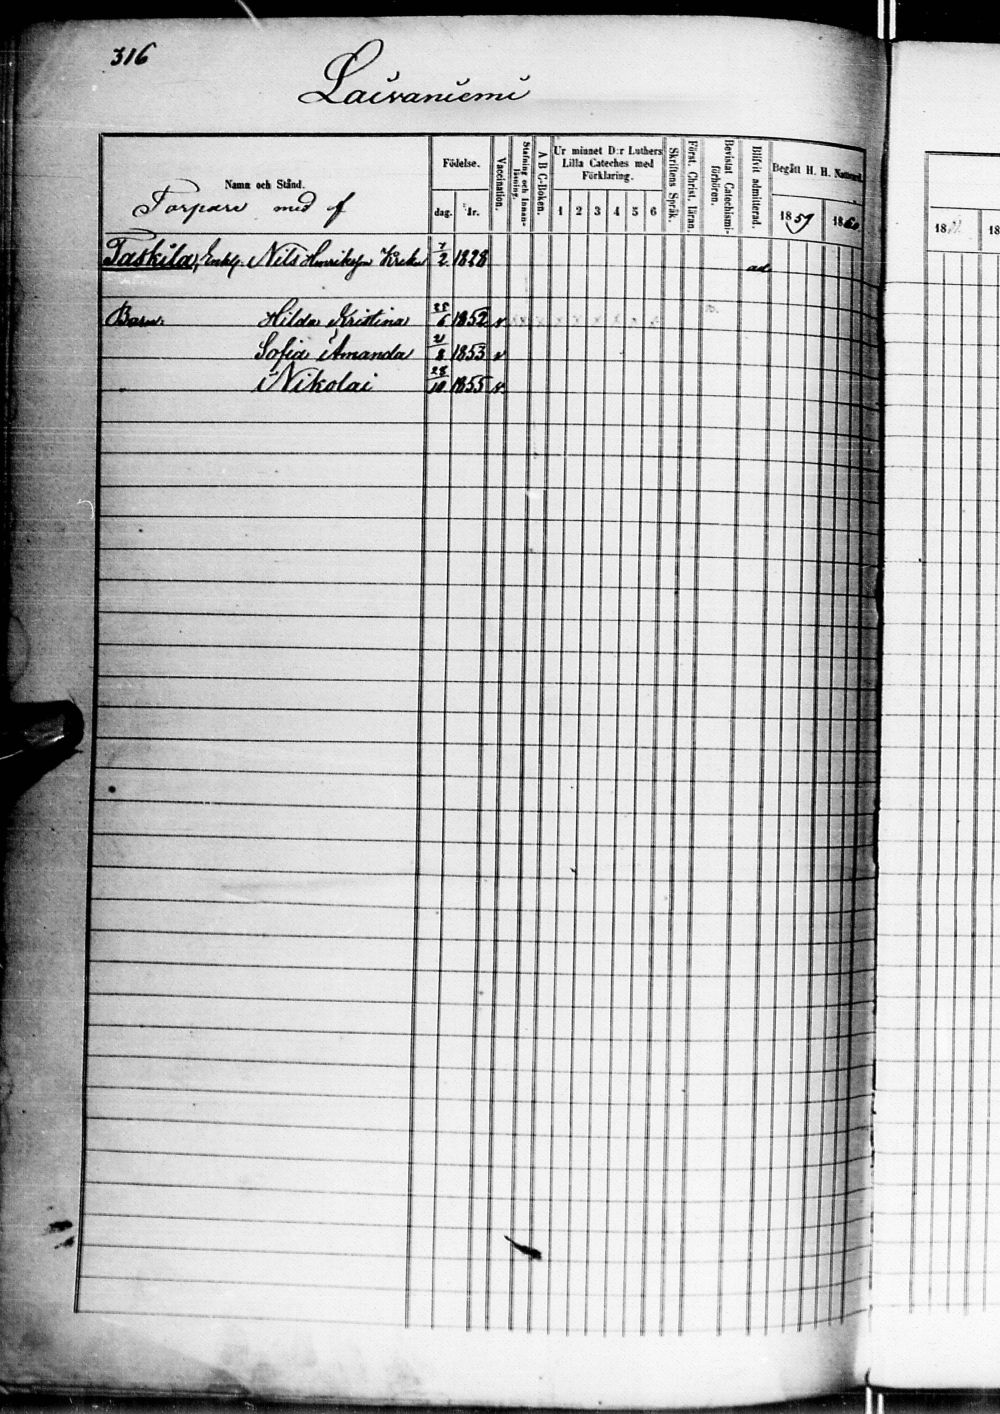 316
Laivaniemi
Namn och Stånd.
Torpare med f
Födelse.
dag. år.
Vaccination.
Stafning och Innan-läsning.
A B C-Boken.
Ur minnet D:r Luthers Lilla Cateches med Förklaring.
1 2 3 4 5 6
Skriftens Språk.
Först. Christ. läran.
Bevistat Catechismi-förhören.
Blifvit admitterad.
Begått H. H. Nattvard.
1859 1860
18 18
Taskila, Enkl. Nils Henriksson 7/2 1828 ad
Barn: Hilda Kristina 25/6 1852 v
Sofia Amanda 21/8 1853 v
Nikolai 28/10 1855 v